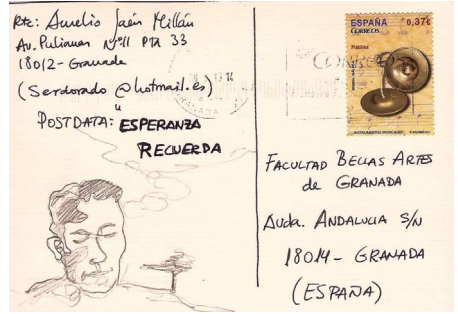 Rte: Aurelio Jaén Millán
Av. Pulianas Nº11 PTA 33
18012-Granada
(Serdorado @hotmail.es)
"
POSTDATA: ESPERANZA
RECUERDA
ESPAÑA 0,37€
CORREOS
Platillos
INSTRUMENTOS MUSICALES
CORREOS
13 14
FACULTAD BELLAS ARTES
de GRANADA
Avda. ANDALUCIA S/N
18014- GRANADA
(ESPAÑA)